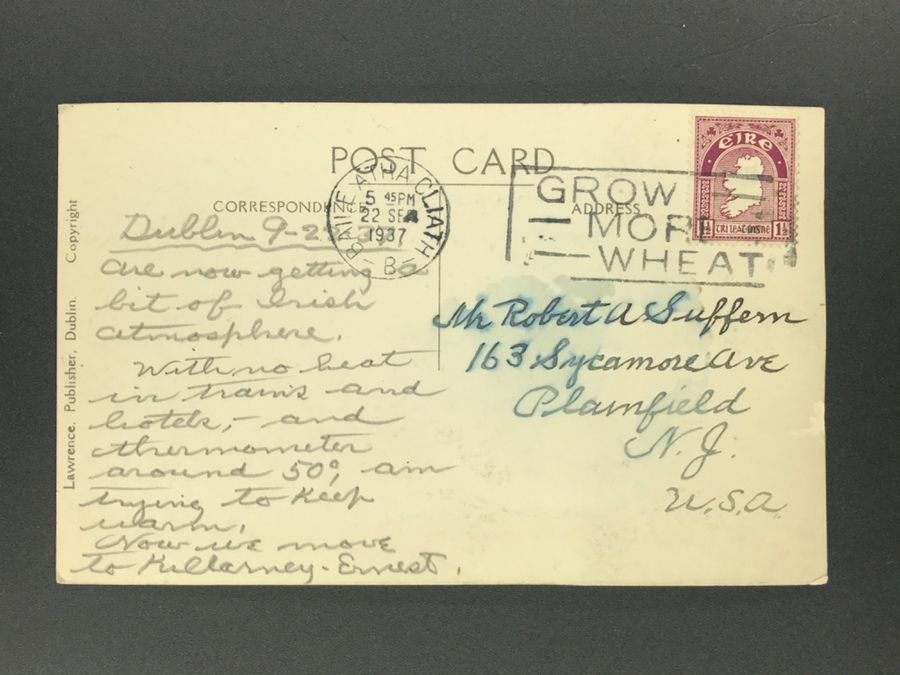 POST CARD
CORRESPONDE
ADDRESS
Lawrence, Publisher, Dublin. Copyright
BAILE ATHA CLIATH
5 45PM
22 SE
1937
B
GROW
MORE
WHEAT
EIRE
1½ TRÍ LEAT-ṖINNE 1½
Dublin 9-2
Are now getting a
bit of Irish
atmosphere.
With no heat
in trains and
hotels,- and
thermometer
around 50°, am
trying to keep
warm.
Now we move
to Killarney- Ernest.
Mr Robert A Suffern
163 Sycamore Ave
Plainfield
N.J.
U.S.A.